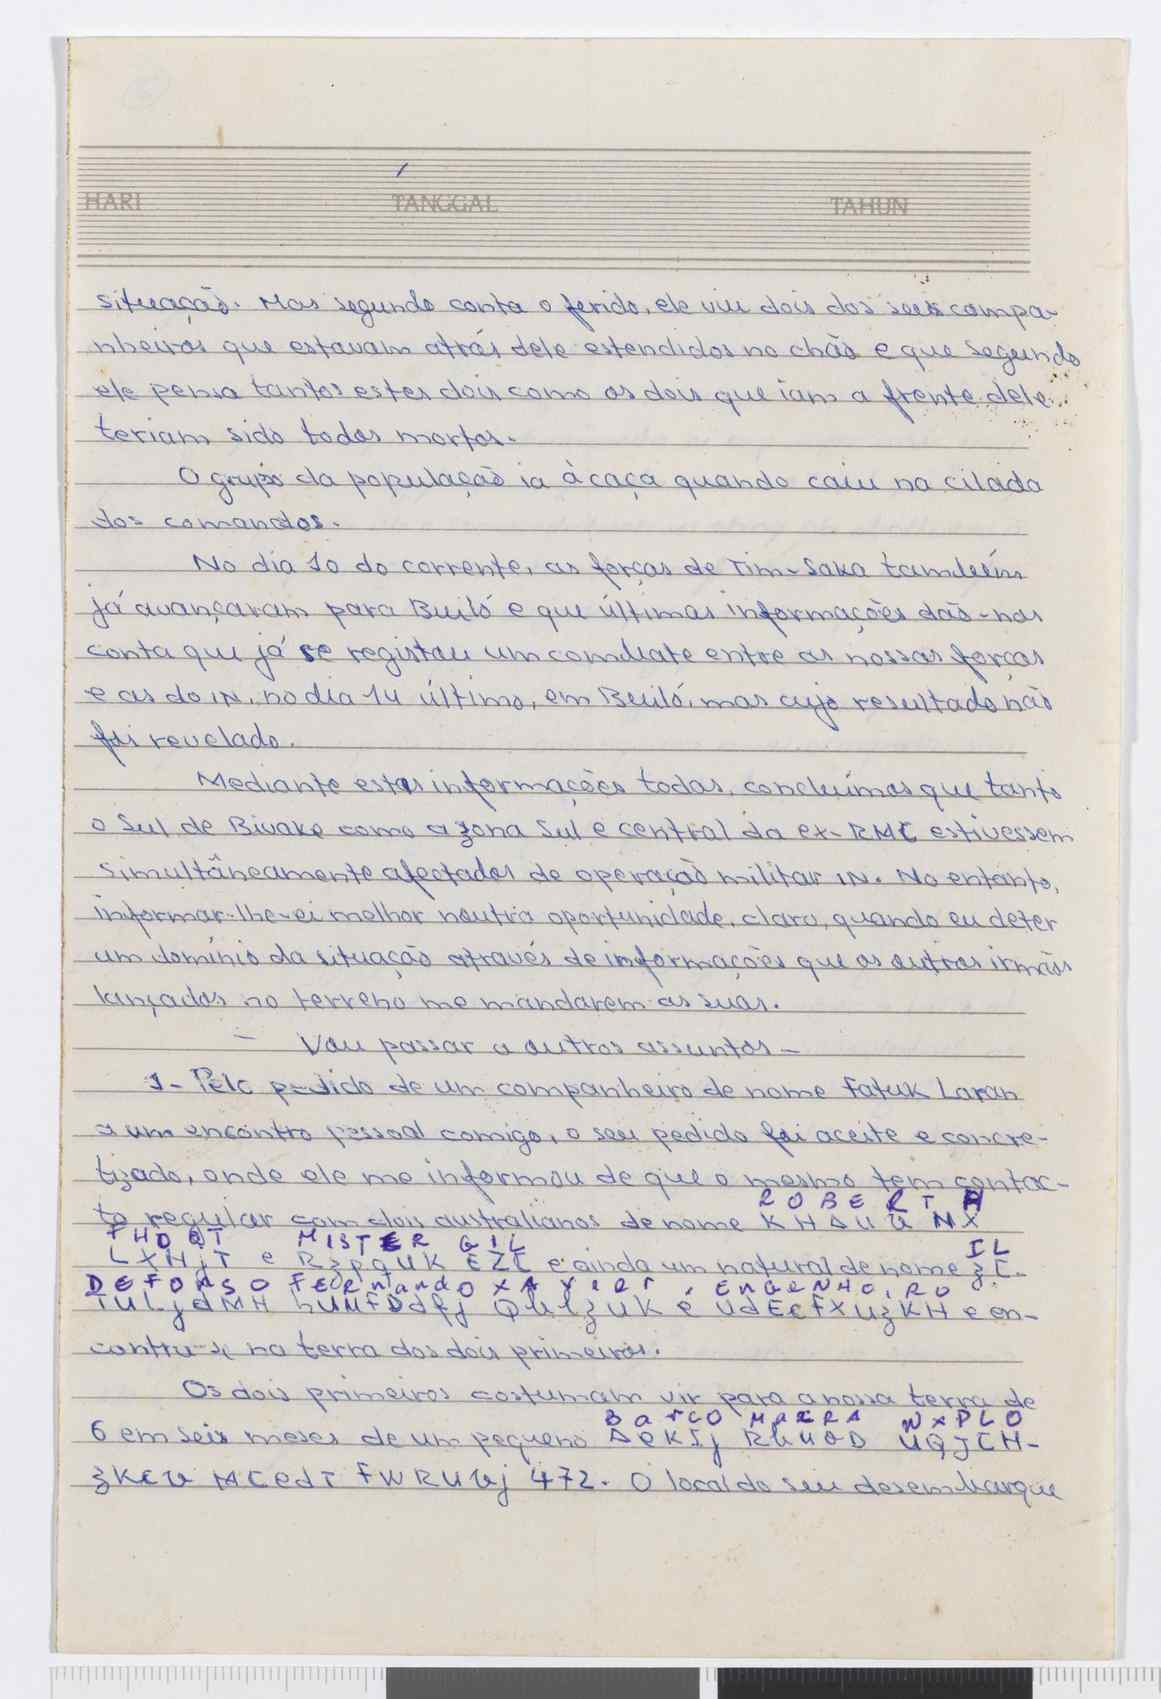 HARI TANGGAL TAHUN
situação. Mas segundo conta o ferido, ele viu dois dos seus compa-
nheiros que estavam atrás dele estendidos no chão e que segundo
ele pensa tantos estes dois como os dois que iam a frente dele
teriam sido todos mortos.
O grupo da população ia à caça quando caiu na cilada
dos comandos.
No dia 10 do corrente, as forças de Tim-Saka também
já avançaram para Builó e que últimas informações dão-nos
conta que já se registou um combate entre as nossas forças
e as do IN, no dia 14 último, em Builó, mas cujo resultado não
foi revelado.
Mediante estas informações todas, concluímos que tanto
o Sul de Bivake como a zona Sul e central da ex-RMC estivessem
simultâneamente afectados de operação militar IN. No entanto,
informar-lhe-ei melhor noutra oportunidade, claro, quando eu deter
um domínio da situação através de informações que os outros irmãos
lançados no terreno me mandarem as suas.
— Vou passar a outros assuntos —
1- Pelo pedido de um companheiro de nome Fatuk Laran
a um encontro pessoal comigo, o seu pedido foi aceite e concre-
tizado, onde ele me informou de que o mesmo tem contac-
ROBERT
to regular com dois australianos de nome
MISTER GIL IL
e e ainda um natural de nome
DEFONSO FERnandO ENGENHEIRO
é e en-
contra-se na terra dos dois primeiros.
Os dois primeiros costumam vir para a nossa terra de
BarCO
6 em seis meses de um pequeno
472. O local do seu desembarque